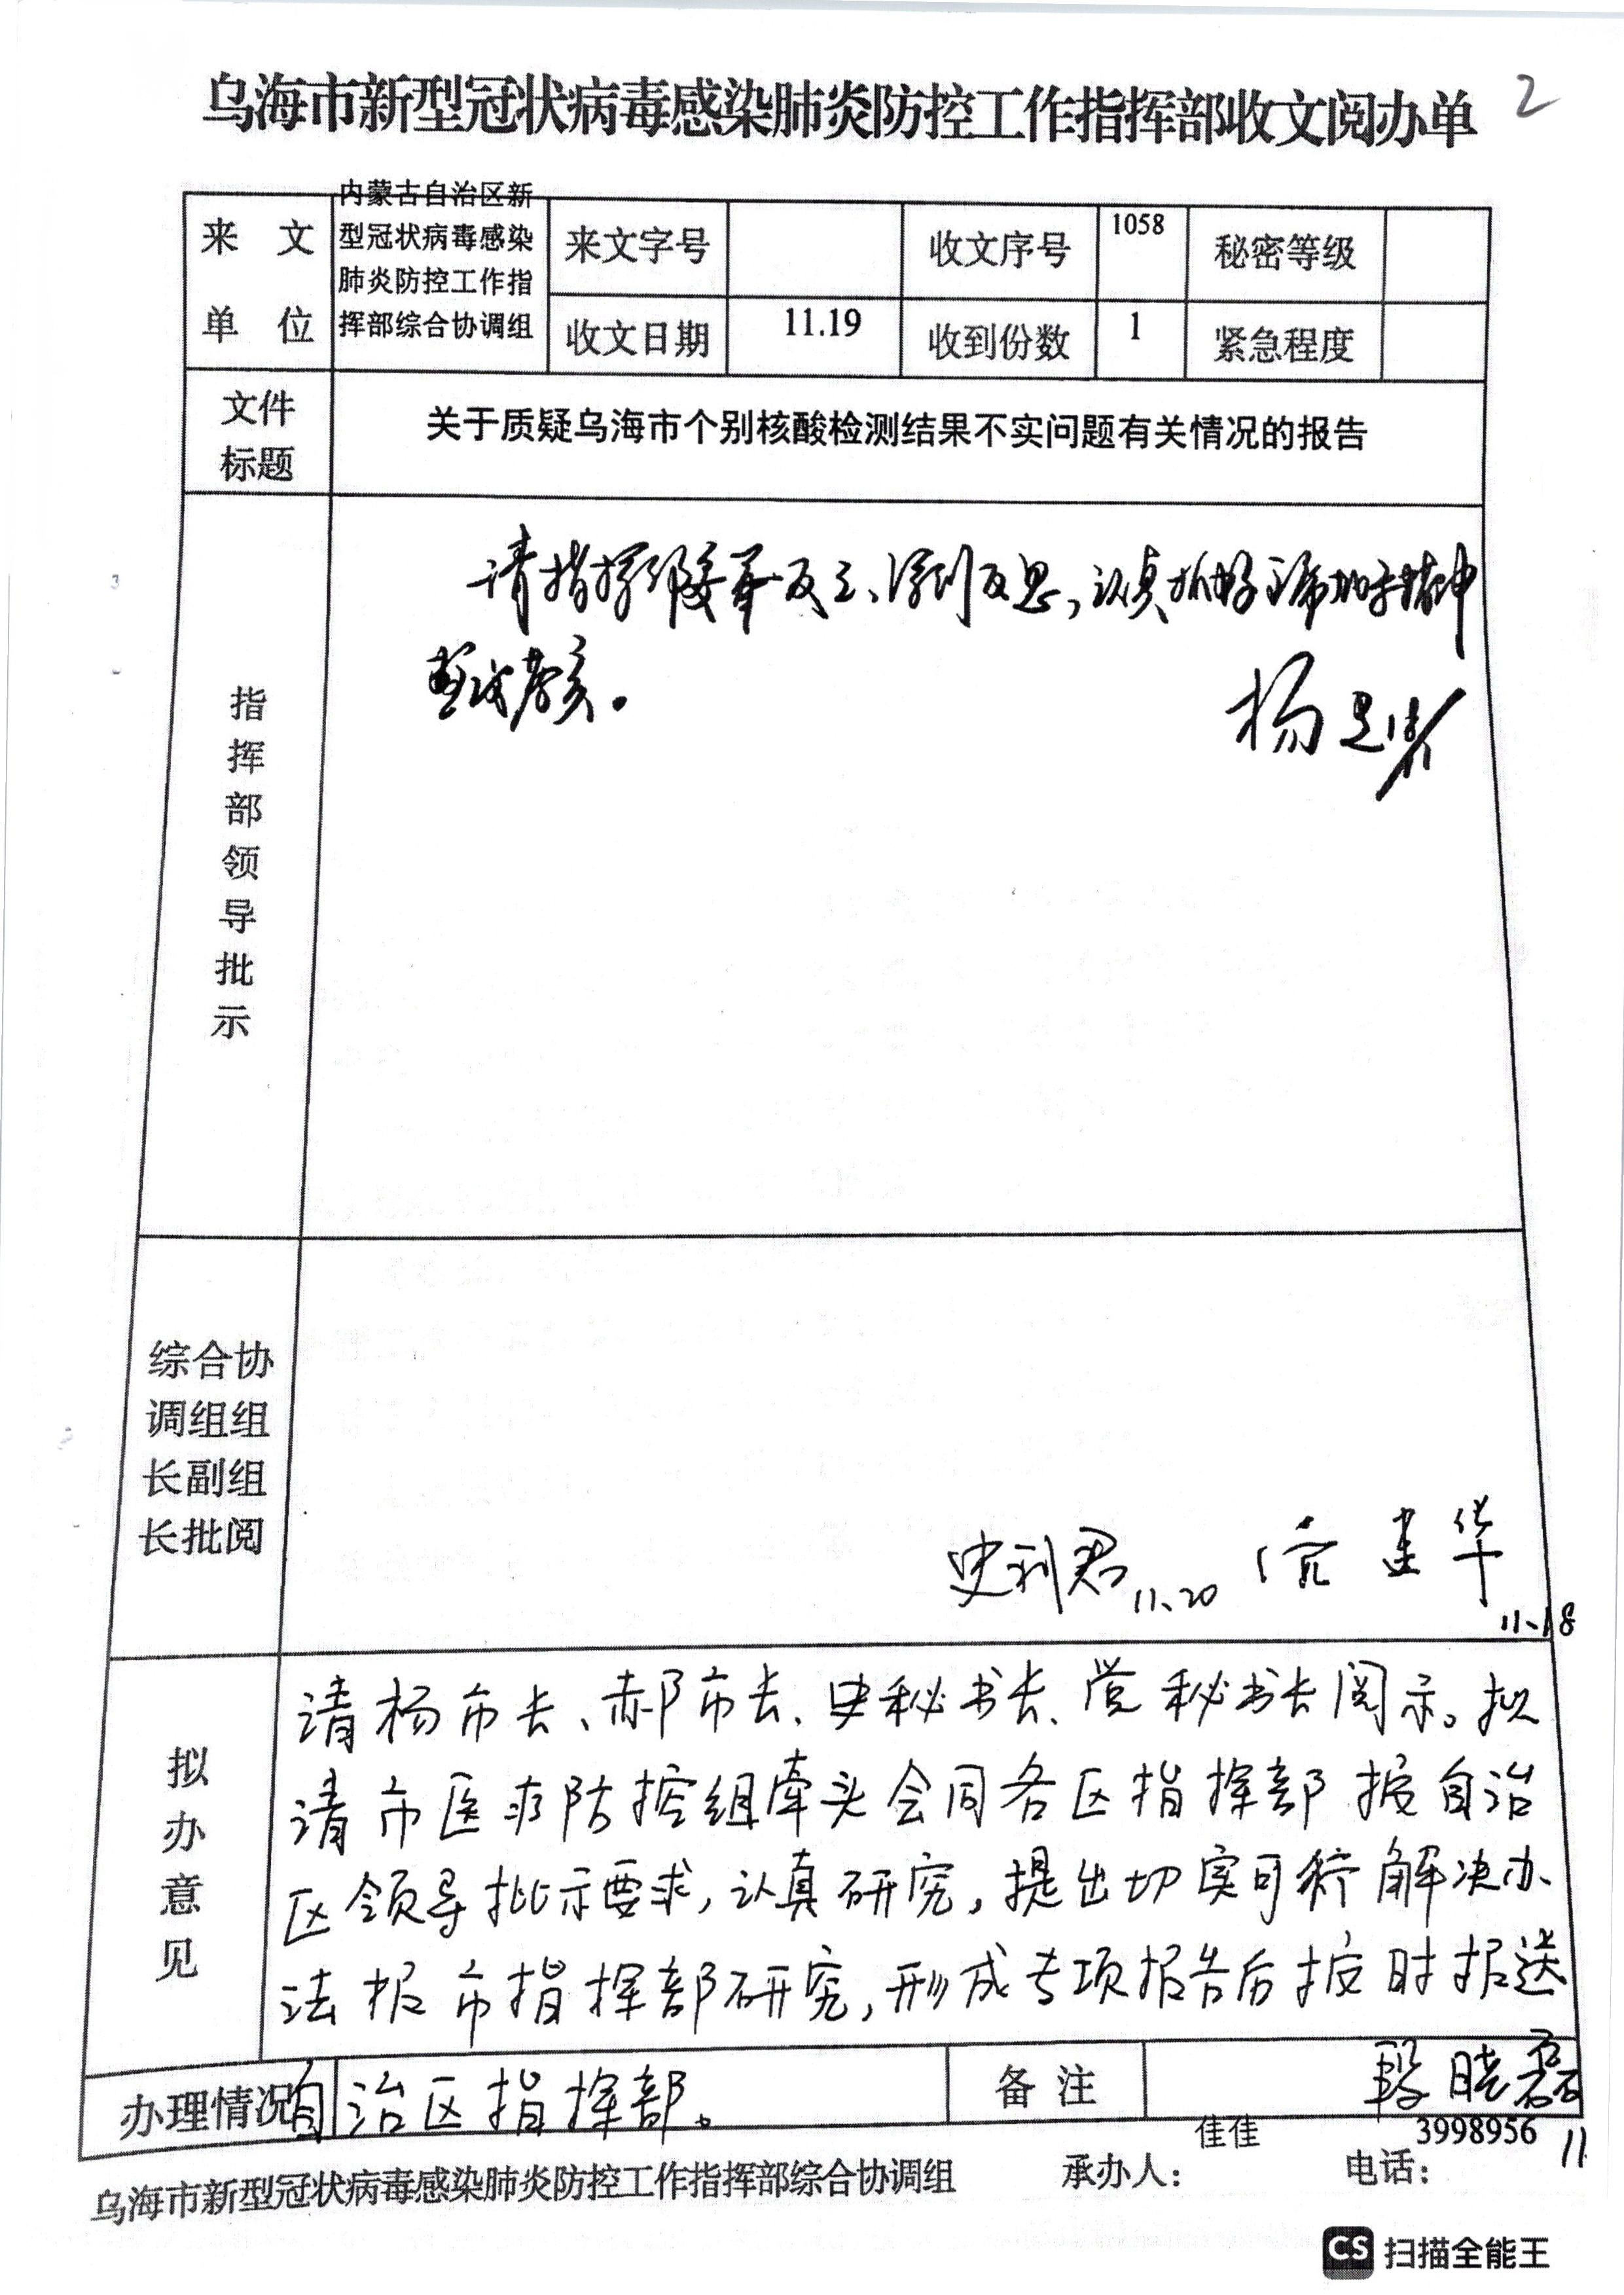 乌海市新型冠状病毒感染肺炎防控工作指挥部收文阅办单 2
来文单位 内蒙古自治区新型冠状病毒感染肺炎防控工作指挥部综合协调组 来文字号 收文序号 1058 秘密等级
收文日期 11.19 收到份数 1 紧急程度
文件标题 关于质疑乌海市个别核酸检测结果不实问题有关情况的报告
指挥部领导批示
请指挥部 反三、深刻反思,认真抓好
杨
综合协调组组长副组长批阅
史利君 11.20 建华 11.18
拟办意见
请杨市长、郝市长、史秘书长、党秘书长阅示。拟
请市医疗防控组牵头会同各区指挥部按自治
区领导批示要求,认真研究,提出切实可行解决办
法报市指挥部研究,形成专项报告后按时报送
办理情况 自治区指挥部。 备注 段晓磊
乌海市新型冠状病毒感染肺炎防控工作指挥部综合协调组 承办人: 佳佳 电话: 3998956 11
CS 扫描全能王